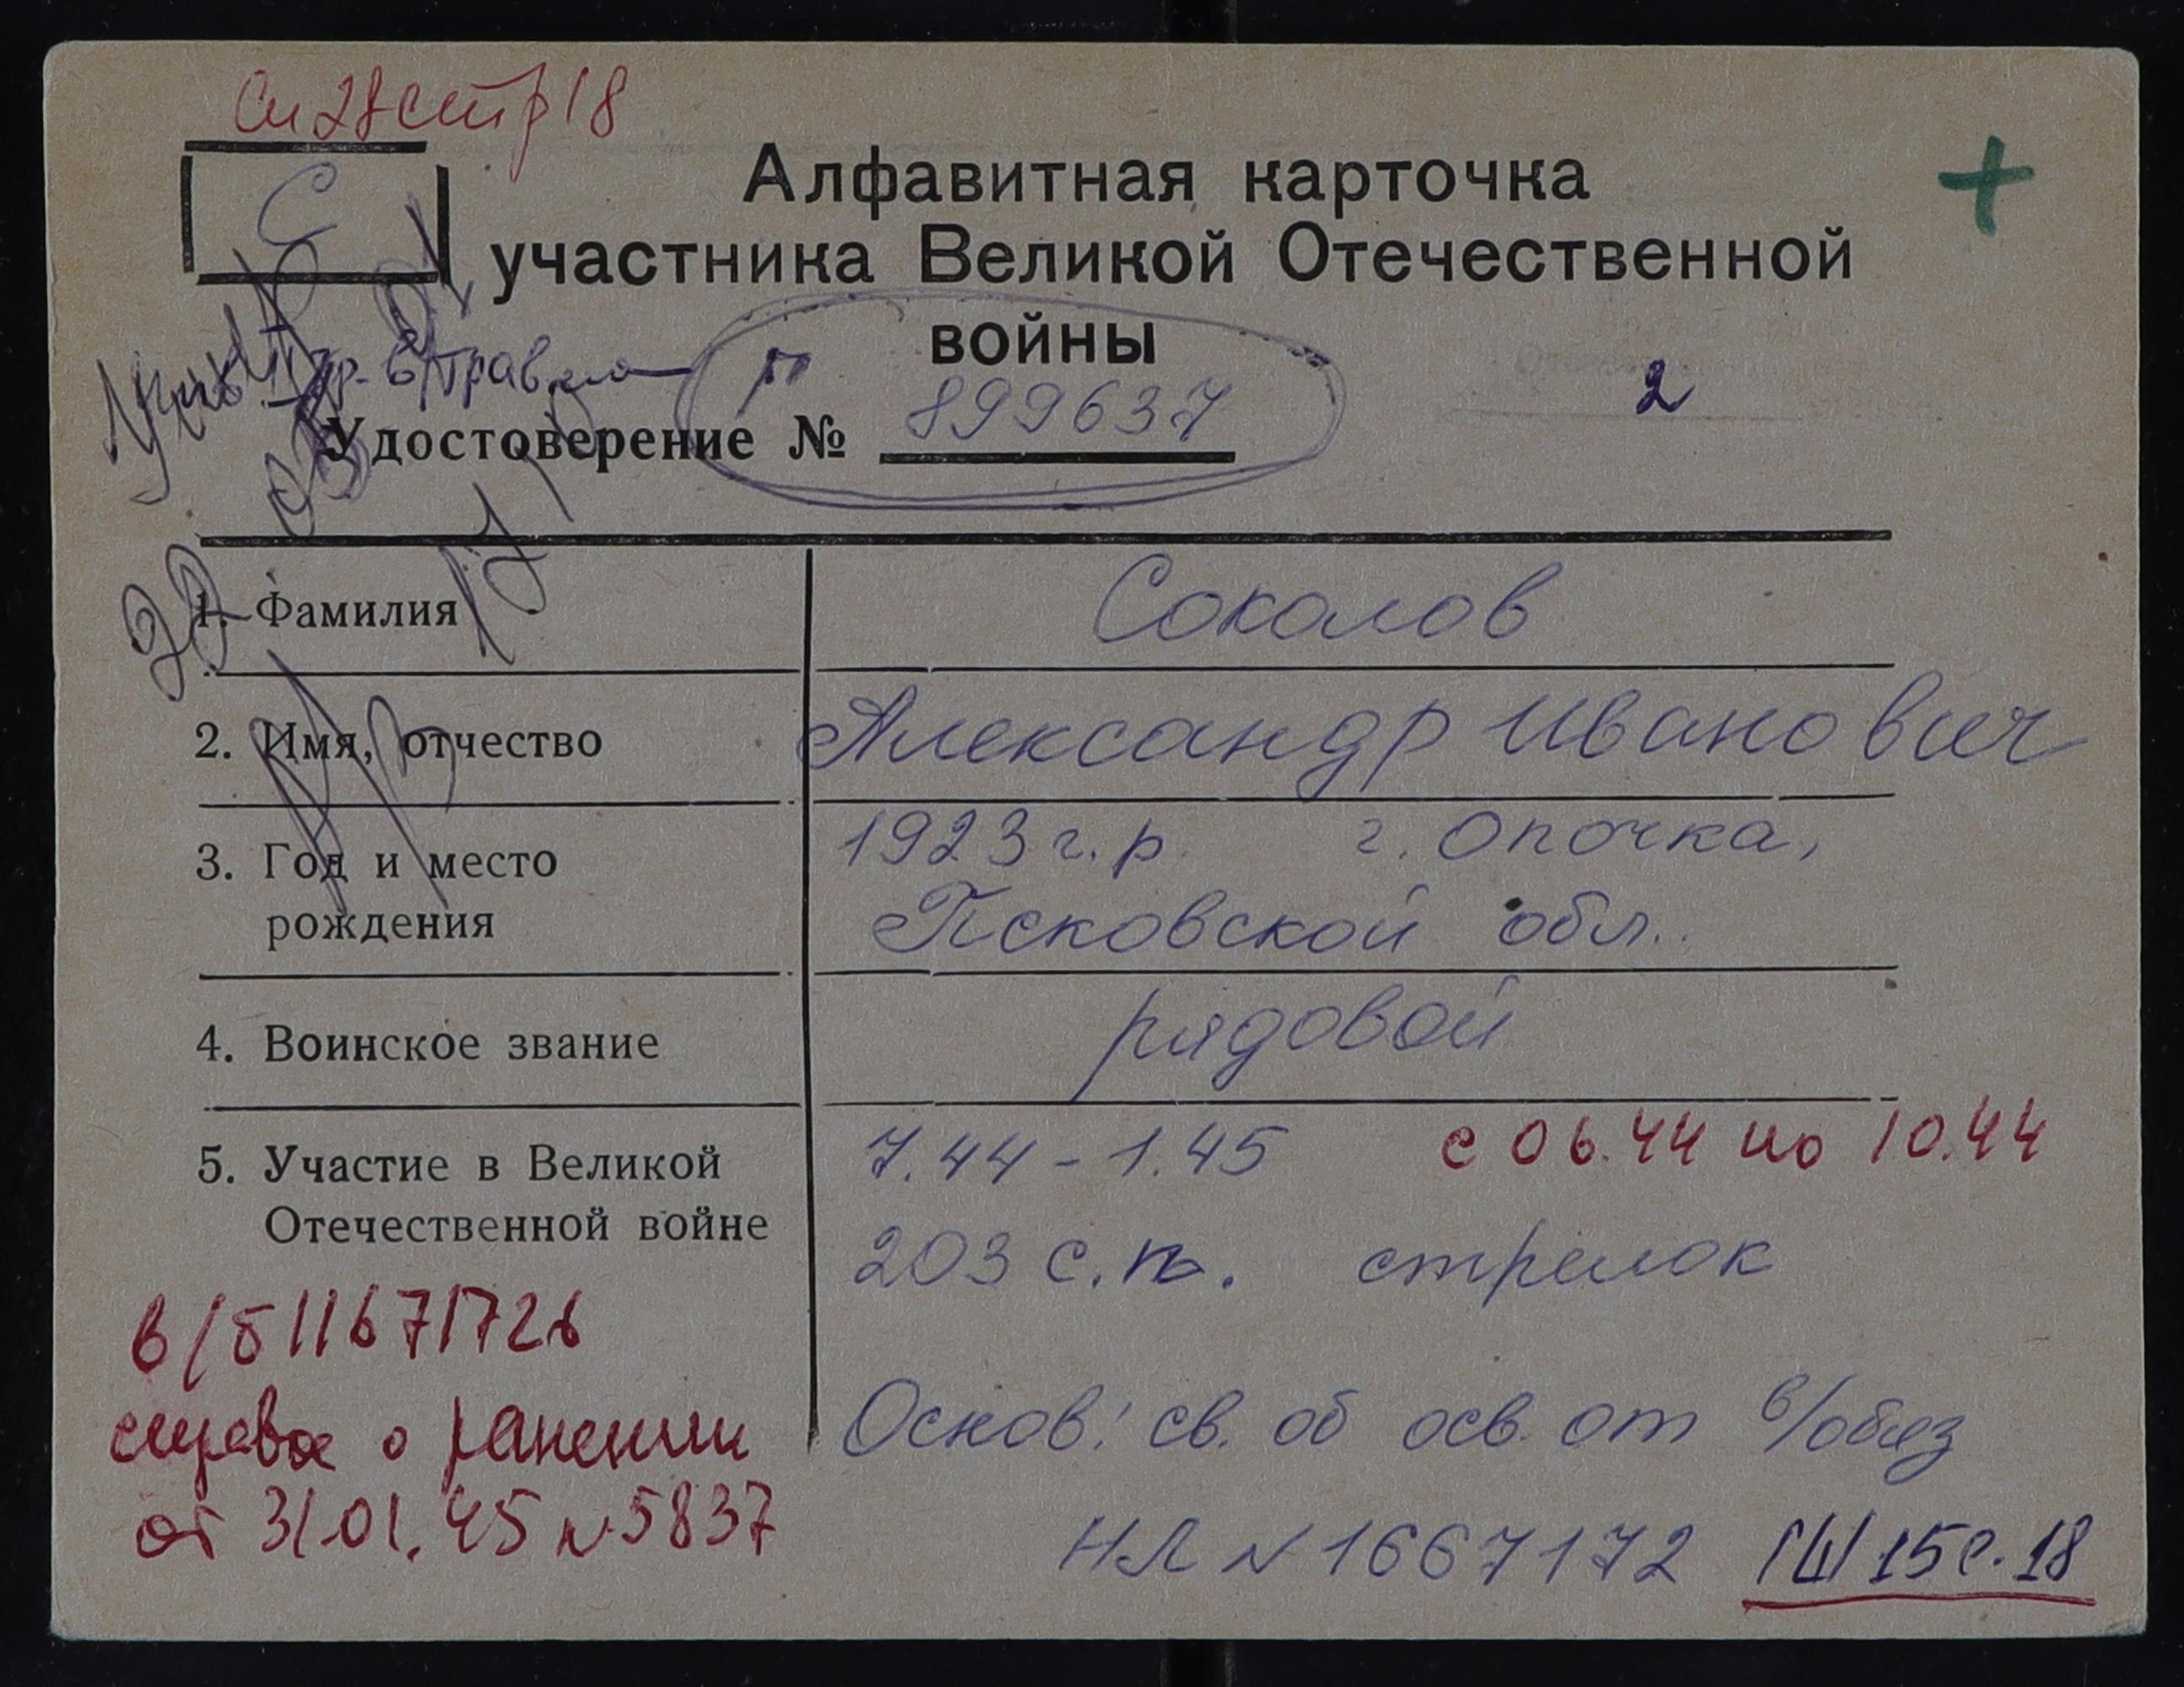 Сп 28 стр 18
С
Алфавитная карточка
участника Великой Отечественной
войны
2
Удостоверение № 899637
1. Фамилия Соколов
2. Имя, отчество Александр Иванович
3. Год и место рождения 1923 г.р. г. Опочка,
Псковской обл.
4. Воинское звание рядовой
5. Участие в Великой Отечественной войне 7.44 - 1.45 с 06.44 по 10.44
203 с.п. стрелок
в/б 11671726
справка о ранении
от 31.01.45 N 5837
Основ: св. об осв. от в/обяз
НЛ N 1667172 ГШ 15 с. 18